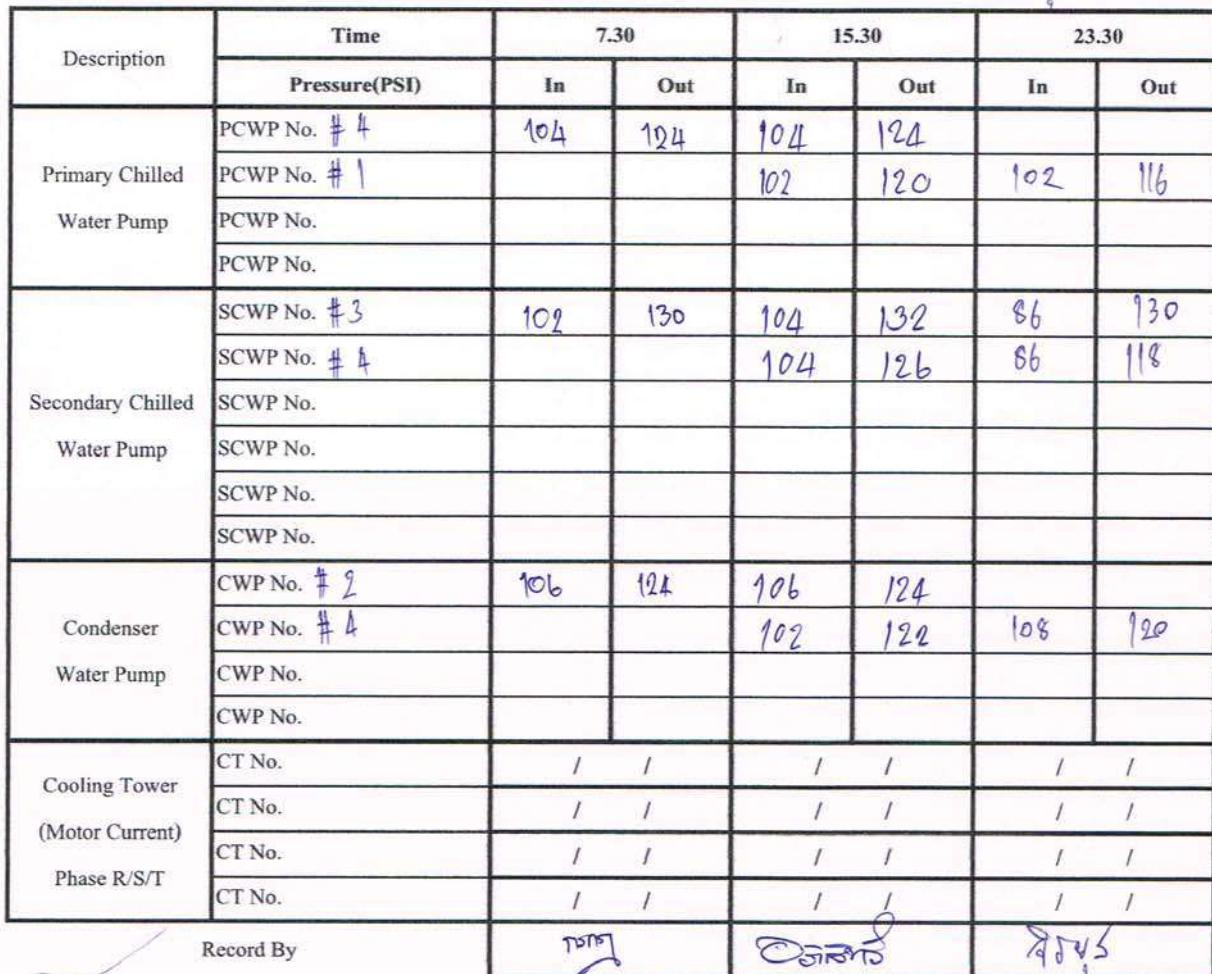 Description Time 7.30 15.30 23.30
Pressure(PSI) In Out In Out In Out
Primary Chilled Water Pump
PCWP No. # 4 104 124 104 124
PCWP No. # 1 102 120 102 116
PCWP No.
PCWP No.
Secondary Chilled Water Pump
SCWP No. #3 102 130 104 132 86 130
SCWP No. # 4 104 126 86 118
SCWP No.
SCWP No.
SCWP No.
SCWP No.
Condenser Water Pump
CWP No. # 2 106 124 106 124
CWP No. # 4 102 122 108 120
CWP No.
CWP No.
Cooling Tower (Motor Current) Phase R/S/T
CT No. / / / / / /
CT No. / / / / / /
CT No. / / / / / /
CT No. / / / / / /
Record By